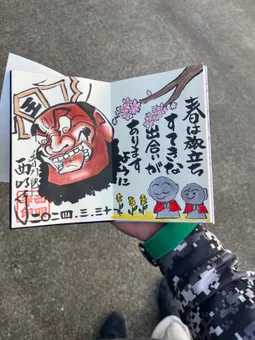 春は旅立ち
すてきな
出会いが
あります
ように
二〇二四.三.三十